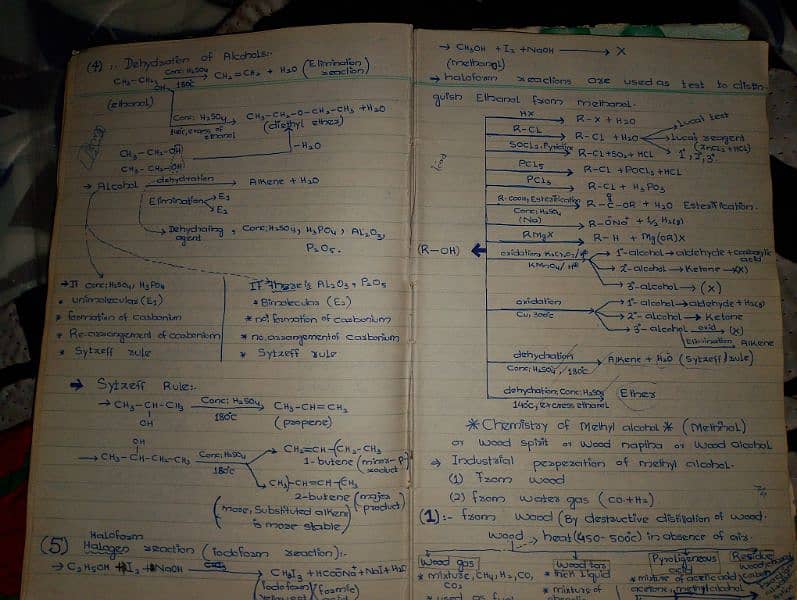 (4) :- Dehydration of Alcohols:-
CH3-CH2 Conc; H2SO4 180c CH2=CH2 + H2O (Elimination reaction)
OH
(ethanol)
Conc; H2SO4 CH3-CH2-O-CH2-CH3 +H2O
excess of ethanol (diethyl ether)
CH3-CH2-OH
-H2O
CH3-CH2-OH
→ Alcohol dehydration Alkene + H2O
Elimination E1
E2
Dehydrating agent, Conc; H2SO4, H3PO4, AL2O3,
P2O5.
→ If Conc; H2SO4, H3PO4
• unimolecular (E1)
* formation of carbonium
* Re-arrangement of carbonium
* Sytzeff rule
If there is AL2O3, P2O5
* Bimolecular (E2)
* not formation of carbonium
* no arrangement of carbonium
* Sytzeff rule
→ Sytzeff Rule:-
→ CH3-CH-CH3 Conc; H2SO4 180c CH3-CH=CH2
OH (propene)
OH
→ CH3-CH-CH2-CH3 Conc; H2SO4 180c
CH2=CH-CH2-CH3
1-butene (minor product)
CH3-CH=CH-CH3
2-butene (major product)
(more, Substituted alkene is more stable)
Haloform
(5) Halogen reaction (Iodoform reaction):-
→ C2H5OH + I2 + NaOH → CHI3 + HCOONa + NaI + H2O
→ CH3OH + I2 + NaOH → X
(methanol)
→ haloform reactions are used as test to distin
guish Ethanol from methanol.
(R-OH)
HX R-X + H2O
R-CL R-CL + H2O
Lucas test
Lucas reagent
(ZnCL2 + HCL)
1°, 2°, 3°
SOCL2, Pyridine R-CL + SO2 + HCL
PCL5 R-CL + POCL3 + HCL
PCL3 R-CL + H3PO3
R-COOH, Esterification Conc; H2SO4 R-C-OR + H2O Esterification.
O
(Na) R-ONa + 1/2 H2(g)
RMgX R-H + Mg(OR)X
oxidation K2Cr2O7/H KMnO4/H
1°-alcohol → aldehyde + carboxylic acid
2°-alcohol → Ketone → (X)
3°-alcohol → (X)
oxidation Cu, 300c
1°-alcohol → aldehyde + H2(g)
2°-alcohol → Ketone
3°-alcohol oxid (X)
Elimination Alkene
dehydration Conc; H2SO4, 180c Alkene + H2O (Sytzeff rule)
dehydration, Conc; H2SO4 140c, excess ethanol Ether
* Chemistry of Methyl alcohol * (Methnol)
or wood spirit or wood naptha or wood alcohol
→ Industrial preperation of methyl alcohol.
(1) from wood
(2) from water gas (CO+H2)
(1):- from wood (By destructive distillation of wood.
wood → heat (450-500c) in absence of air.
Wood gas
* mixture, CH4, H2, CO,
CO2
* used as fuel
Wood tar
* thick liquid
* mixture of
Pyroligeneous acid
* mixture of acetic acid,
acetone, methyl alcohol
Residue